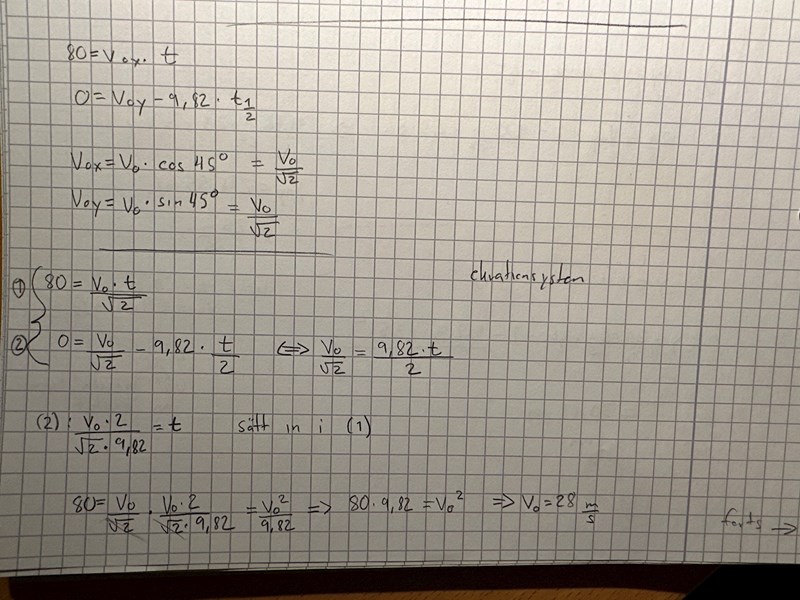 80 = V₀ₓ · t
0 = V₀y − 9,82 · t½
V₀ₓ = V₀ · cos 45° = V₀/√2
V₀y = V₀ · sin 45° = V₀/√2
ekvationsystem
① 80 = V₀ · t/√2
② 0 = V₀/√2 − 9,82 · t/2 ⟺ V₀/√2 = 9,82 · t/2
(2): V₀ · 2/√2 · 9,82 = t sätt in i (1)
80 = V₀/√2 · V₀ · 2/√2 · 9,82 = V₀²/9,82 => 80 · 9,82 = V₀² => V₀ = 28 m/s
forts →